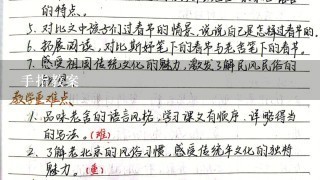 的特点。
5. 对比文中孩子们过春节的情景,说说自己是怎样过春节的。
6. 拓展阅读,对比斯妤笔下的春节与老舍笔下的春节。
7. 感受祖国传统文化的魅力,激发了解民风民俗的
手指教案
教学重难点
1. 品味老舍的语言风格,学习课文有顺序、详略得当
的写法。(难)
2. 了解老北京的风俗习惯,感受传统年文化的独特
魅力。(重)